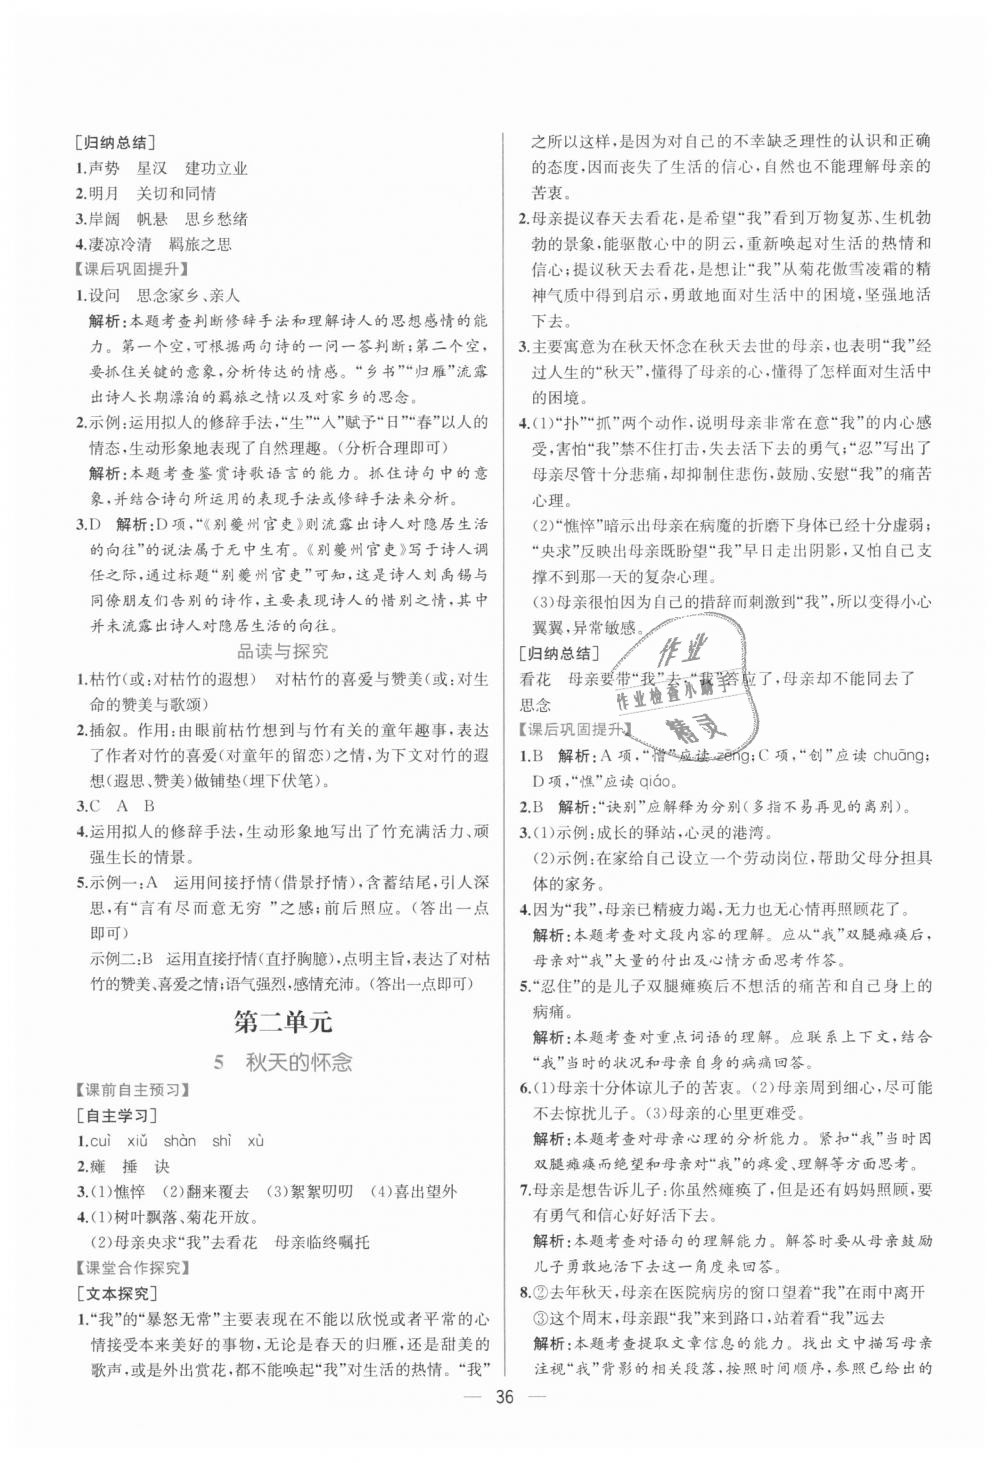 [归纳总结]
1.声势　星汉　建功立业
2.明月　关切和同情
3.岸阔　帆悬　思乡愁绪
4.凄凉冷清　羁旅之思
【课后巩固提升】
1.设问　思念家乡、亲人
解析:本题考查判断修辞手法和理解诗人的思想感情的能
力。第一个空,可根据两句诗的一问一答判断;第二个空,
要抓住关键的意象,分析传达的情感。“乡书”“归雁”流露
出诗人长期漂泊的羁旅之情以及对家乡的思念。
2.示例:运用拟人的修辞手法,“生”“入”赋予“日”“春”以人的
情态,生动形象地表现了自然理趣。(分析合理即可)
解析:本题考查鉴赏诗歌语言的能力。抓住诗句中的意
象,并结合诗句所运用的表现手法或修辞手法来分析。
3.D　解析:D项,“《别夔州官吏》则流露出诗人对隐居生活
的向往”的说法属于无中生有。《别夔州官吏》写于诗人调
任之际,通过标题“别夔州官吏”可知,这是诗人刘禹锡与
同僚朋友们告别的诗作,主要表现诗人的惜别之情,其中
并未流露出诗人对隐居生活的向往。
品读与探究
1.枯竹(或:对枯竹的遐想)　对枯竹的喜爱与赞美(或:对生
命的赞美与歌颂)
2.插叙。作用:由眼前枯竹想到与竹有关的童年趣事,表达
了作者对竹的喜爱(对童年的留恋)之情,为下文对竹的遐
想(遐思、赞美)做铺垫(埋下伏笔)。
3.C　A　B
4.运用拟人的修辞手法,生动形象地写出了竹充满活力、顽
强生长的情景。
5.示例一:A　运用间接抒情(借景抒情),含蓄结尾,引人深
思,有“言有尽而意无穷 ”之感;前后照应。(答出一点
即可)
示例二:B　运用直接抒情(直抒胸臆),点明主旨,表达了对枯
竹的赞美、喜爱之情;语气强烈,感情充沛。(答出一点即可)
第二单元
5　秋天的怀念
【课前自主预习】
[自主学习]
1.cuì　xiǔ　shàn　shì　xù
2.瘫　捶　诀
3.(1)憔悴　(2)翻来覆去　(3)絮絮叨叨　(4)喜出望外
4.(1)树叶飘落、菊花开放。
(2)母亲央求“我”去看花　母亲临终嘱托
【课堂合作探究】
[文本探究]
1.“我”的“暴怒无常”主要表现在不能以欣悦或者平常的心
情接受本来美好的事物,无论是春天的归雁,还是甜美的
歌声,或是外出赏花,都不能唤起“我”对生活的热情。“我”
之所以这样,是因为对自己的不幸缺乏理性的认识和正确
的态度,因而丧失了生活的信心,自然也不能理解母亲的
苦衷。
2.母亲提议春天去看花,是希望“我”看到万物复苏、生机勃
勃的景象,能驱散心中的阴云,重新唤起对生活的热情和
信心;提议秋天去看花,是想让“我”从菊花傲雪凌霜的精
神气质中得到启示,勇敢地面对生活中的困境,坚强地活
下去。
3.主要寓意为在秋天怀念在秋天去世的母亲,也表明“我”经
过人生的“秋天”,懂得了母亲的心,懂得了怎样面对生活中
的困境。
4.(1)“扑”“抓”两个动作,说明母亲非常在意“我”的内心感
受,害怕“我”禁不住打击,失去活下去的勇气;“忍”写出了
母亲尽管十分悲痛,却抑制住悲伤,鼓励、安慰“我”的痛苦
心理。
(2)“憔悴”暗示出母亲在病魔的折磨下身体已经十分虚弱;
“央求”反映出母亲既盼望“我”早日走出阴影,又怕自己支
撑不到那一天的复杂心理。
(3)母亲很怕因为自己的措辞而刺激到“我”,所以变得小心
翼翼,异常敏感。
[归纳总结]
看花　母亲要带“我”去　“我”答应了,母亲却不能同去了
思念
【课后巩固提升】
1.B　解析:A项,“憎”应读zēng;C项,“创”应读chuāng;
D项,“憔”应读qiáo。
2.B　解析:“诀别”应解释为分别(多指不易再见的离别)。
3.(1)示例:成长的驿站,心灵的港湾。
(2)示例:在家给自己设立一个劳动岗位,帮助父母分担具
体的家务。
4.因为“我”,母亲已精疲力竭,无力也无心情再照顾花了。
解析:本题考查对文段内容的理解。应从“我”双腿瘫痪后,
母亲对“我”大量的付出及心情方面思考作答。
5.“忍住”的是儿子双腿瘫痪后不想活的痛苦和自己身上的
病痛。
解析:本题考查对重点词语的理解。应联系上下文,结合
“我”当时的状况和母亲自身的病痛回答。
6.(1)母亲十分体谅儿子的苦衷。(2)母亲周到细心,尽可能
不去惊扰儿子。(3)母亲的心里更难受。
解析:本题考查对母亲心理的分析能力。紧扣“我”当时因
双腿瘫痪而绝望和母亲对“我”的疼爱、理解等方面思考。
7.母亲是想告诉儿子:你虽然瘫痪了,但是还有妈妈照顾,要
有勇气和信心好好活下去。
解析:本题考查对语句的理解能力。解答时要从母亲鼓励
儿子勇敢地活下去这一角度来回答。
8.②去年秋天,母亲在医院病房的窗口望着“我”在雨中离开
③这个周末,母亲跟“我”来到路口,站着看“我”远去
解析:本题考查提取文章信息的能力。找出文中描写母亲
注视“我”背影的相关段落,按照时间顺序,参照已给出的
作业
作业检查小助手
精灵
— 36 —